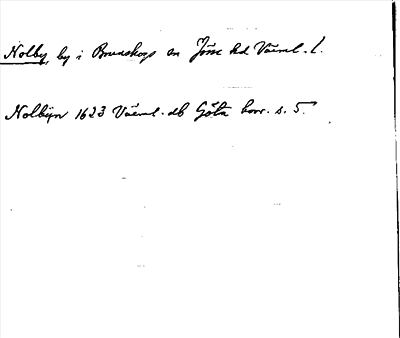 Nolby, by i Brunskogs sn Jösse hd Värml. l.
Nolbÿn 1623 Värml. db Göta hovr. s. 5.